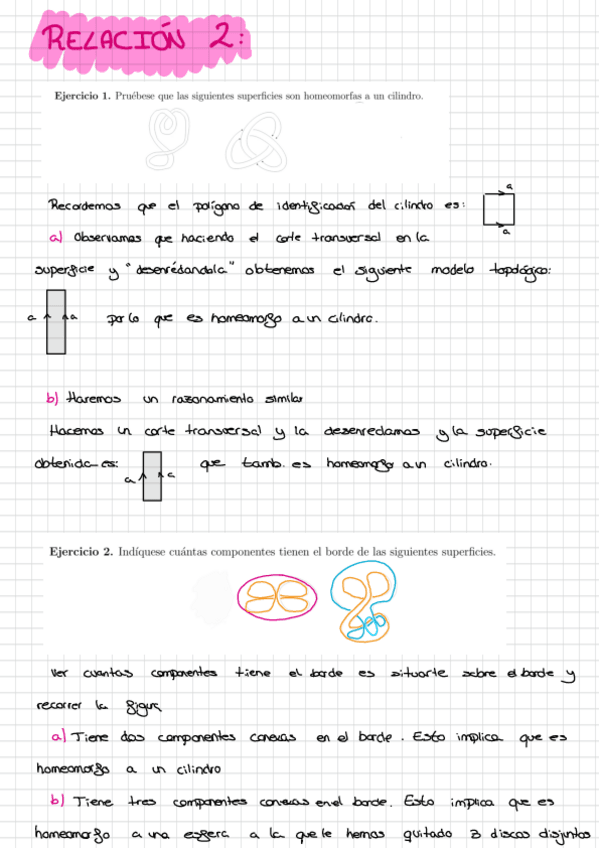 RELACIÓN 2:
Ejercicio 1. Pruébese que las siguientes superficies son homeomorfas a un cilindro.
Recordemos que el polígono de identificación del cilindro es:
a
a
a) Observamos que haciendo el corte transversal en la
superficie y "desenredándola" obtenemos el siguiente modelo topológico:
a a por lo que es homeomorfo a un cilindro.
b) Haremos un razonamiento similar
Hacemos un corte transversal y la desenredamos y la superficie
obtenida es: a a que tamb. es homeomorfo a un cilindro.
Ejercicio 2. Indíquese cuántas componentes tienen el borde de las siguientes superficies.
Ver cuantas componentes tiene el borde es situarte sobre el borde y
recorrer la figura
a) Tiene dos componentes conexas en el borde. Esto implica que es
homeomorfo a un cilindro
b) Tiene tres componentes conexas en el borde. Esto implica que es
homeomorfo a una esfera a la que le hemos quitado 3 discos disjuntos